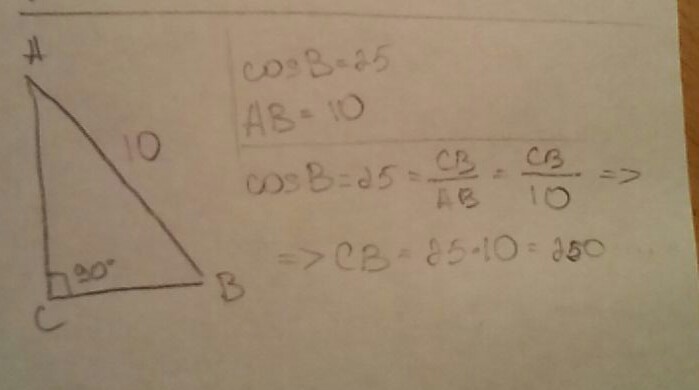 A
10
90°
C
B
cosB=25
AB=10
cosB=25=CB/AB=CB/10 =>
=> CB=25·10=250